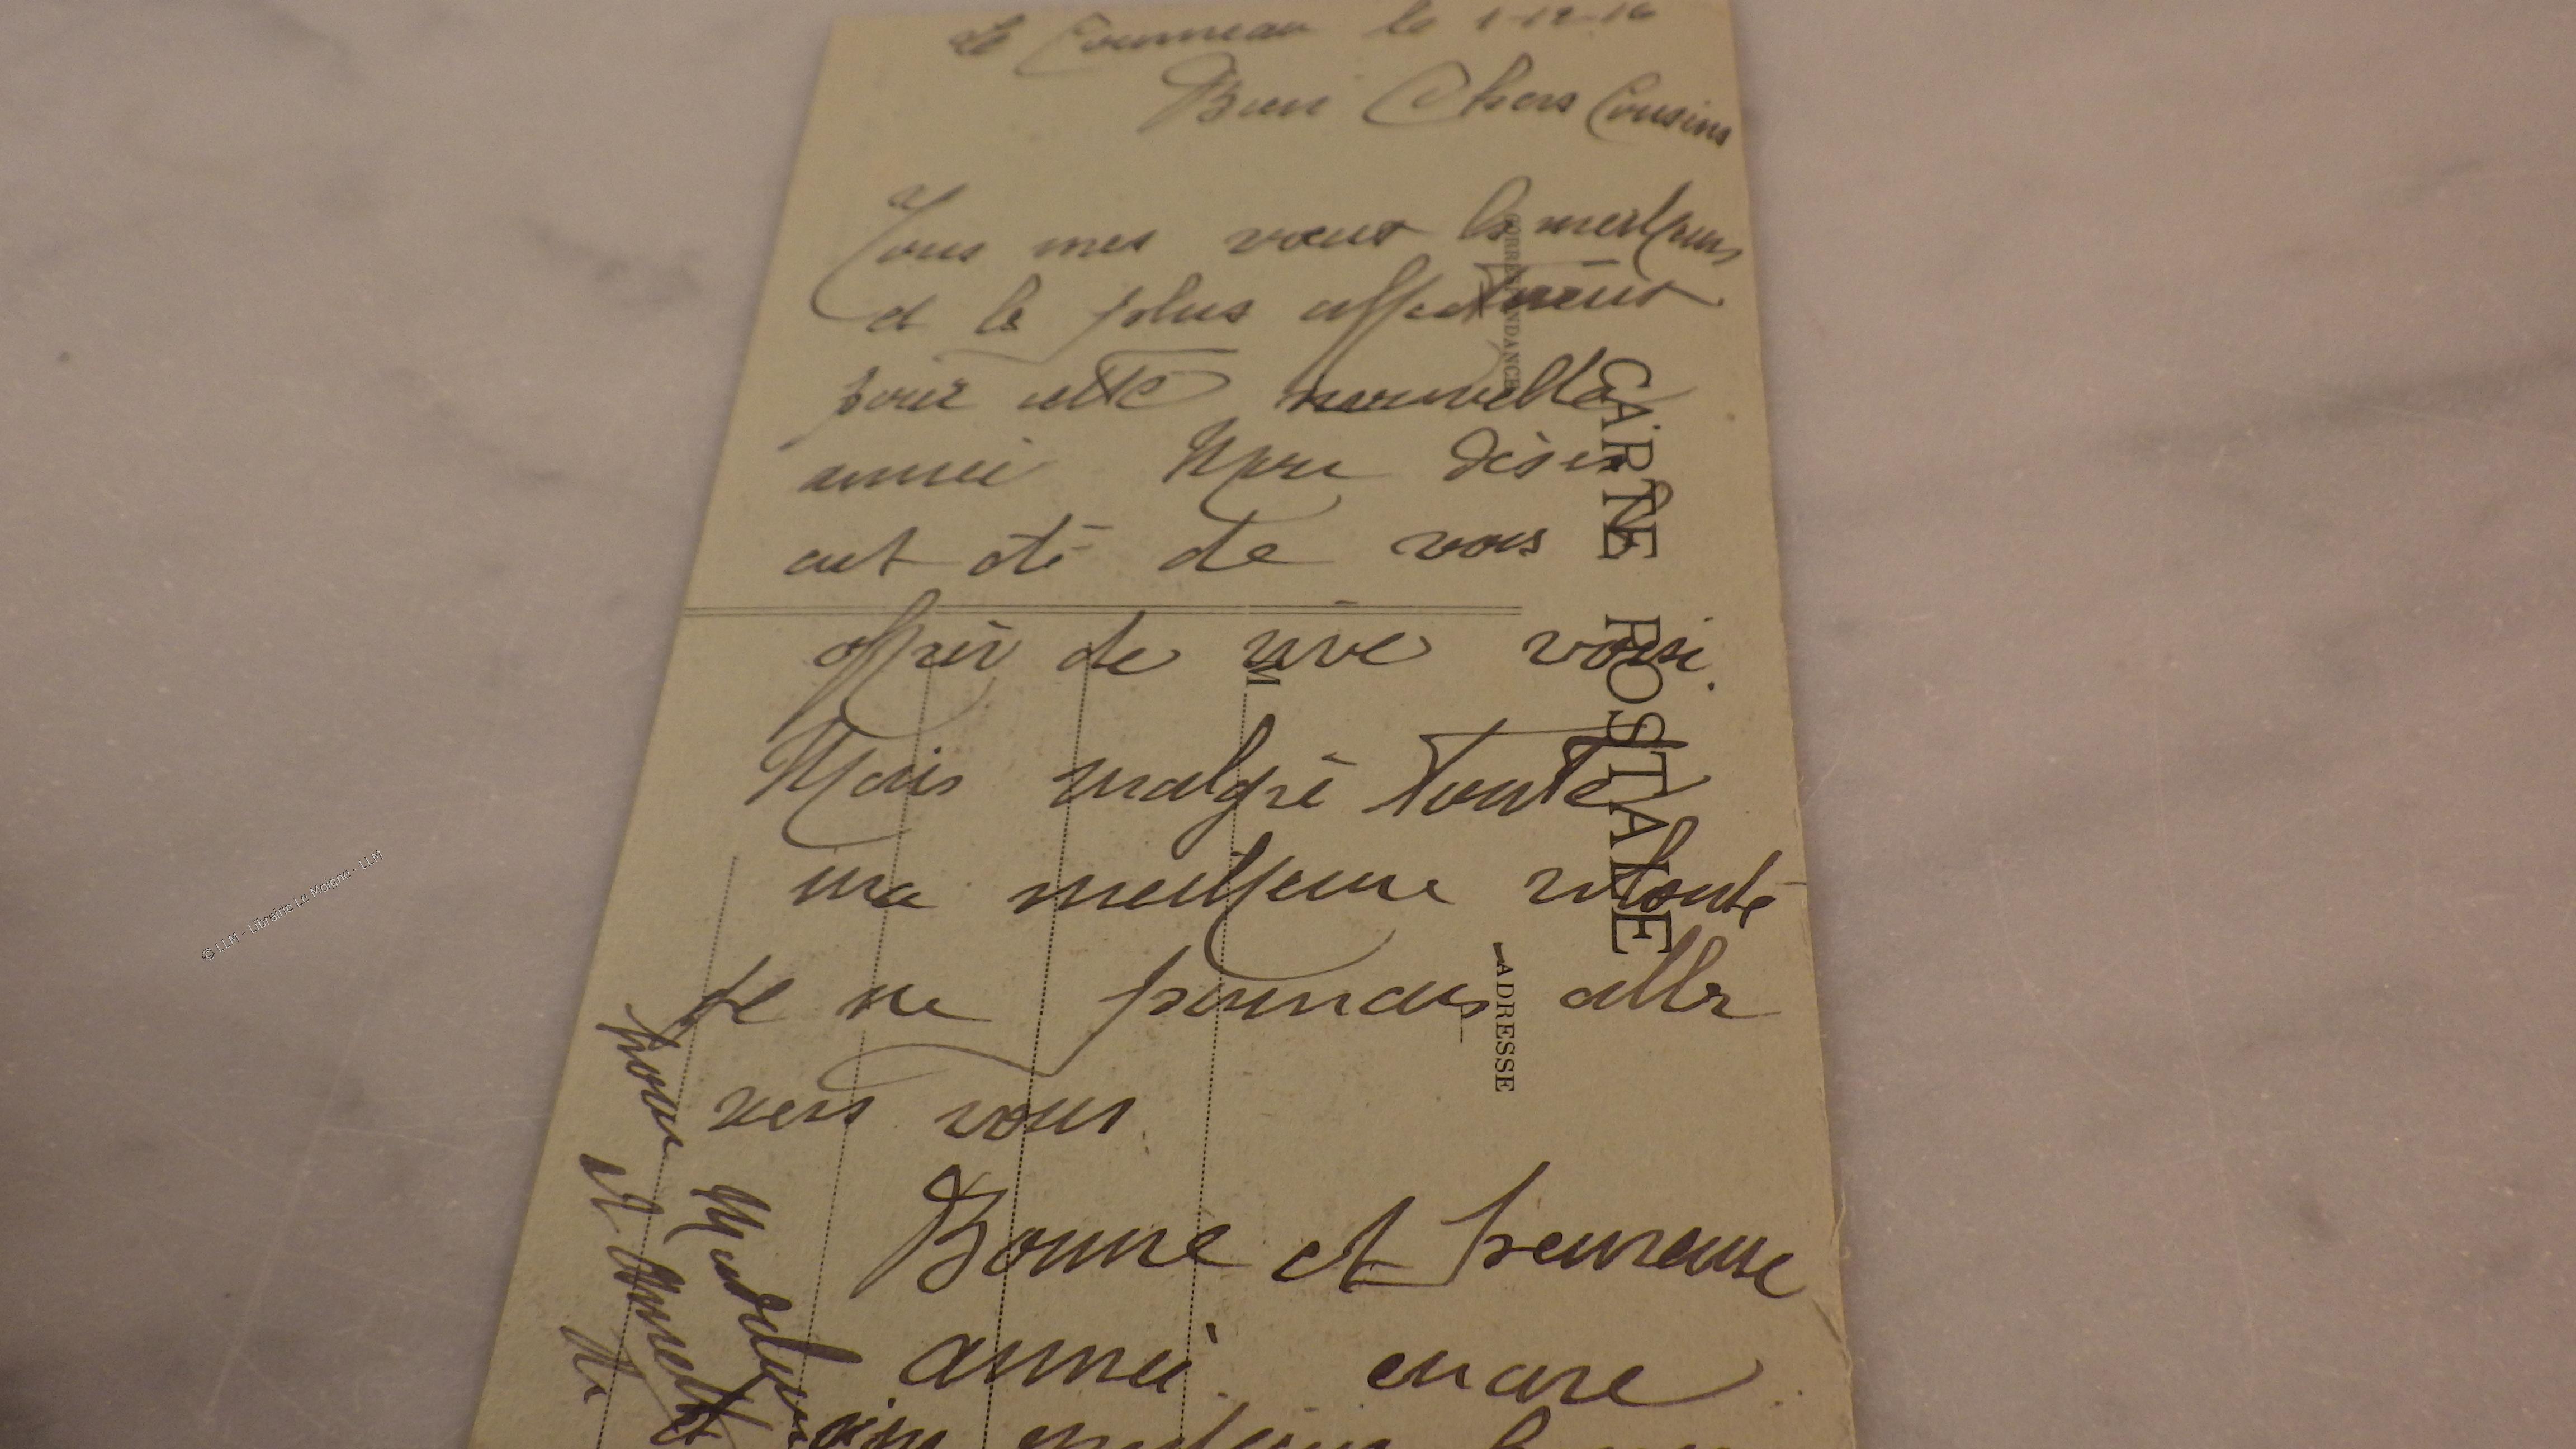 Le Courneau le 1-12-16
Bien Chers Cousins
Tous mes vœux les meilleurs
et le plus affectueux
pour cette nouvelle
année Mon désir
eut été de vous
offrir de vive voix.
Mais malgré toute
ma meilleure volonté
je ne pourrais aller
vers vous.
Bonne et heureuse
année. encore
pour Madeleine
et
CARTE POSTALE
CORRESPONDANCE
ADRESSE
M
© LLM - Librairie Le Moigne - LLM